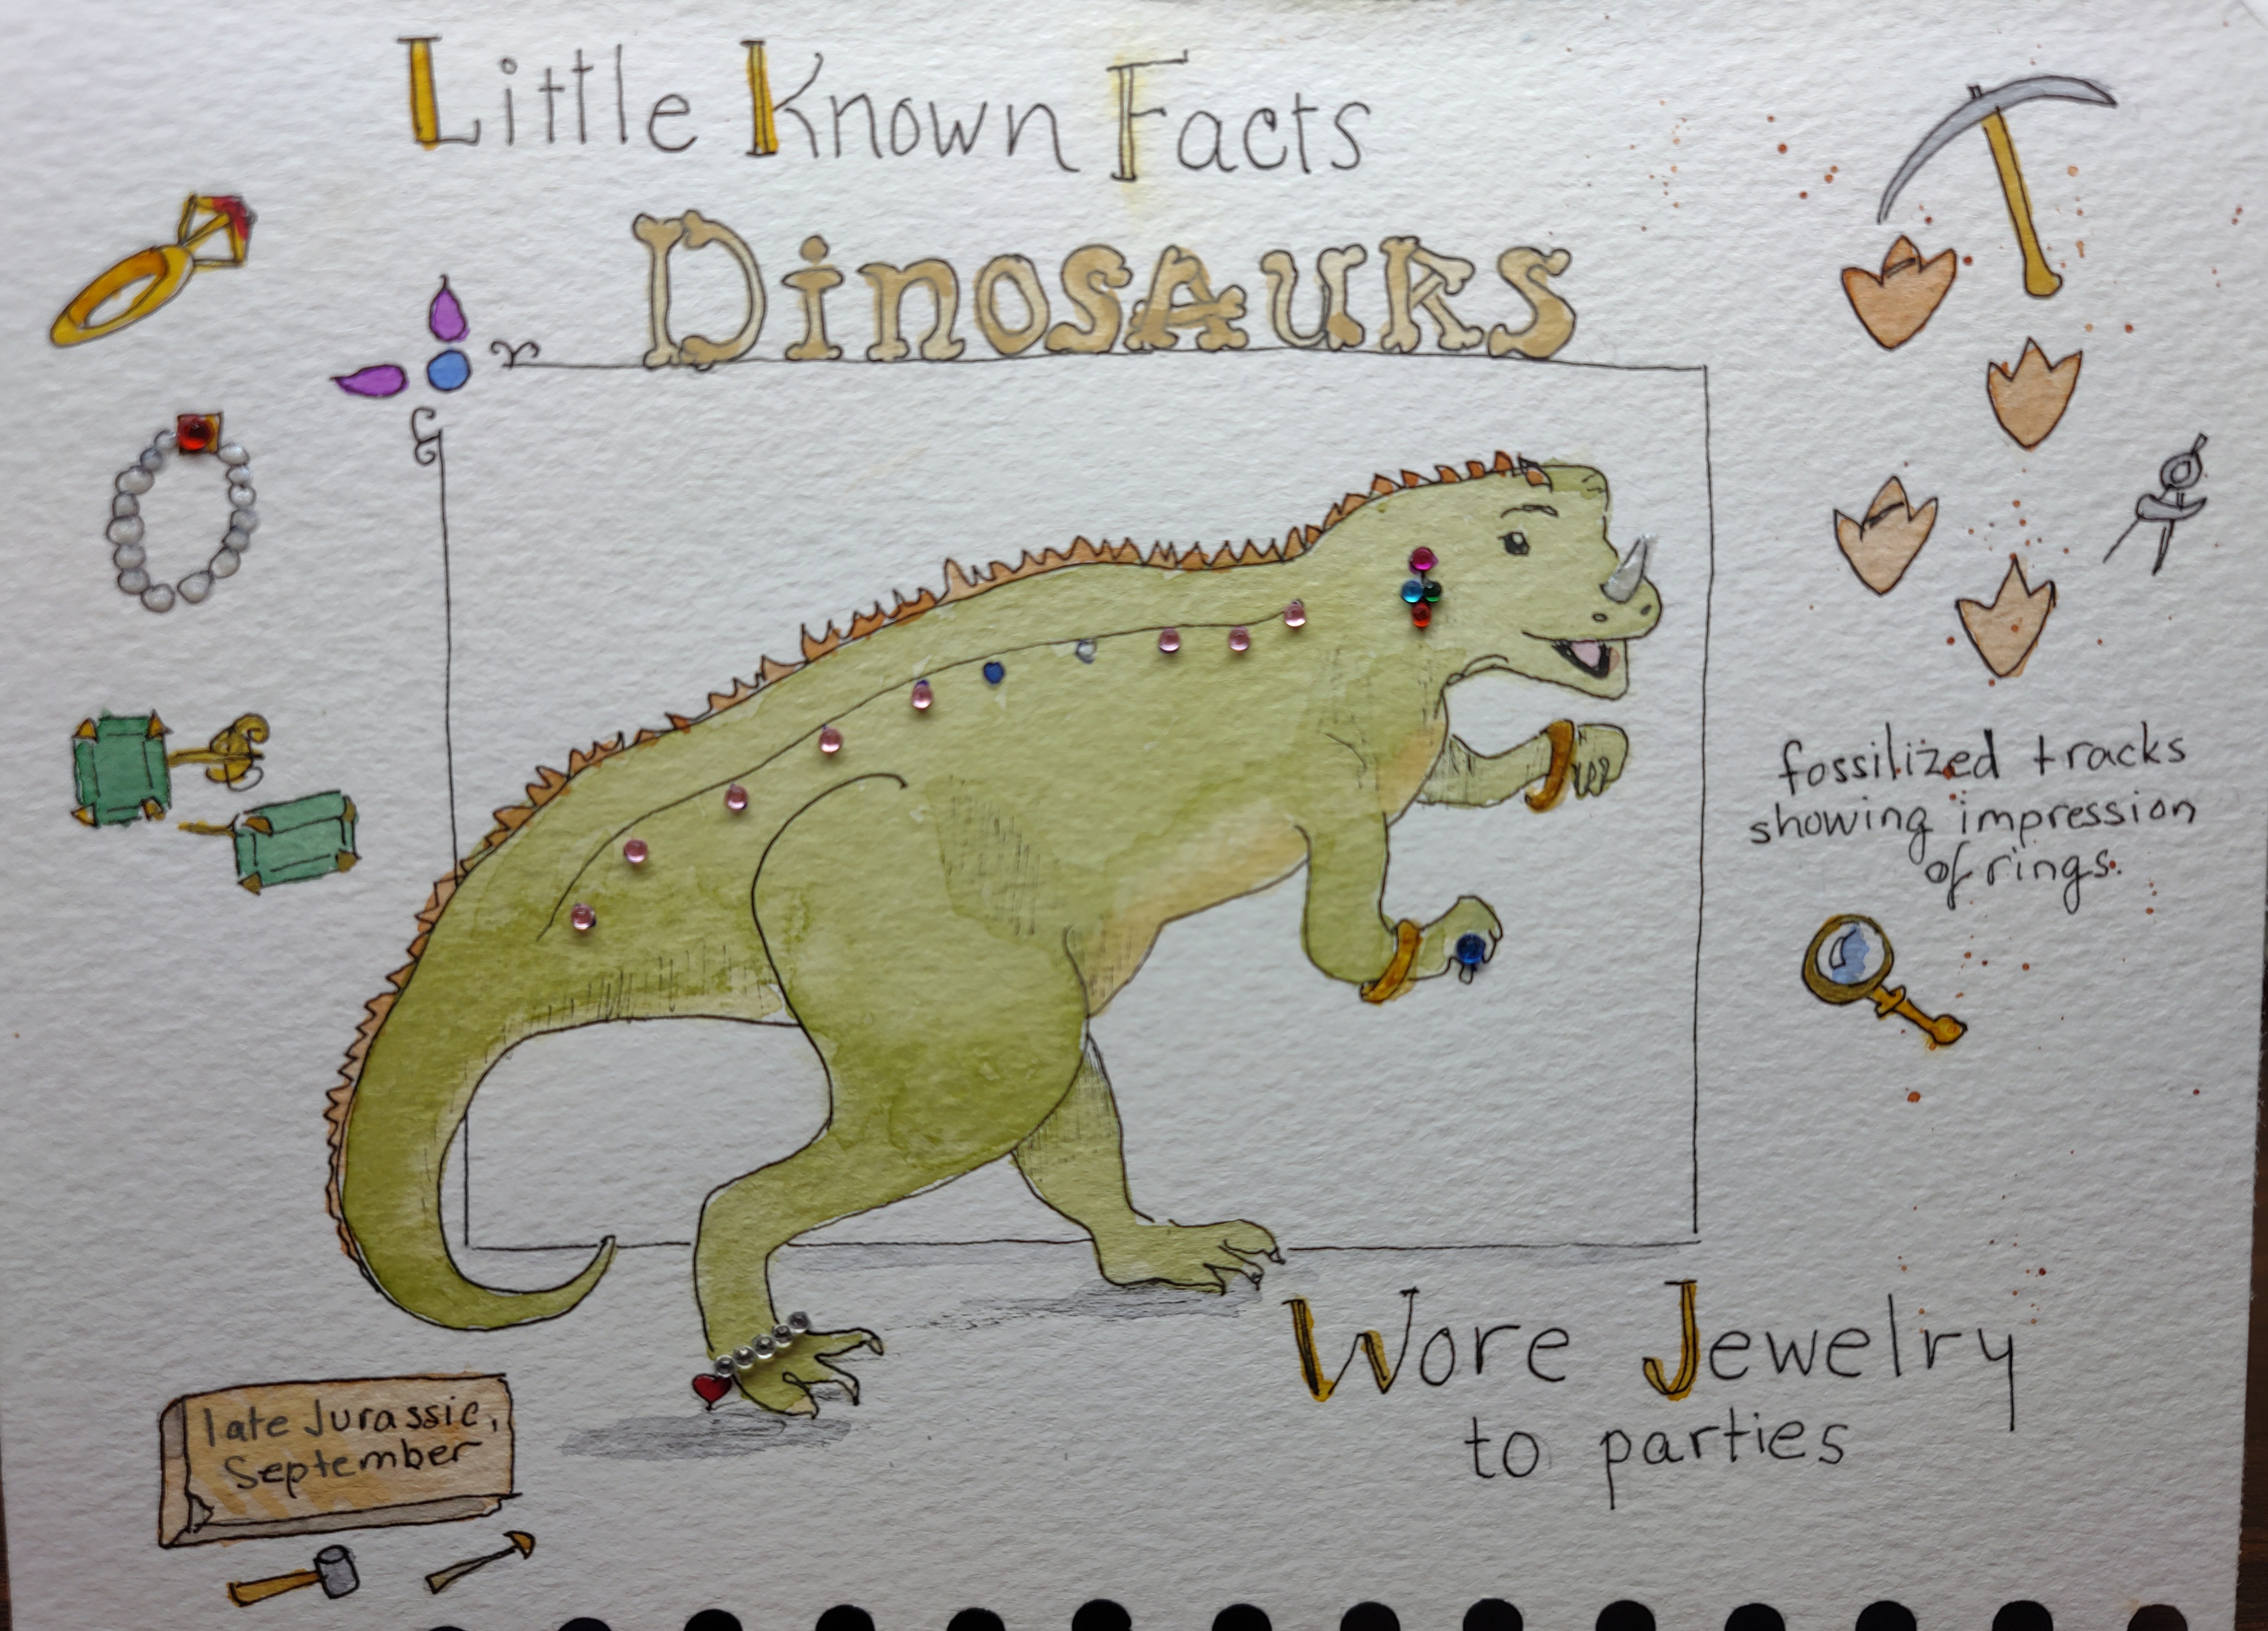 Little Known Facts
DinosAuRs
fossilized tracks
showing impression
of rings.
Wore Jewelry
to parties
late Jurassic,
September